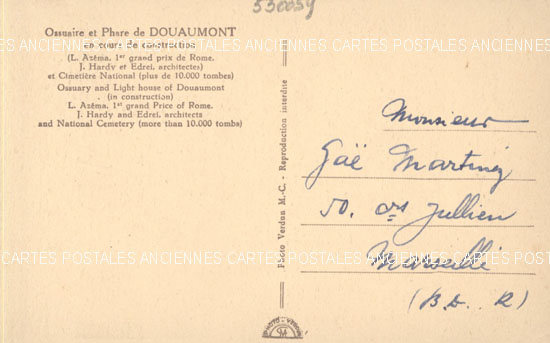 53005y
Ossuaire et Phare de DOUAUMONT
en cours de construction
(L. Azéma, 1er grand prix de Rome.
J. Hardy et Edrei, architectes)
et Cimetière National (plus de 10.000 tombes)
Ossuary and Light house of Douaumont
(in construction)
L. Azéma, 1st grand Price of Rome.
J. Hardy and Edrei, architects
and National Cemetery (more than 10.000 tombs)
Photo Verdun M.-C. - Reproduction interdite
Monsieur
Gaë Martinez
50. crs Jullien
Marseille
(B.d..R)
CARTES POSTALES ANCIENNES CARTES POSTALES ANCIENNES
CARTES POSTALES ANCIENNES CARTES POSTALES ANCIENNES